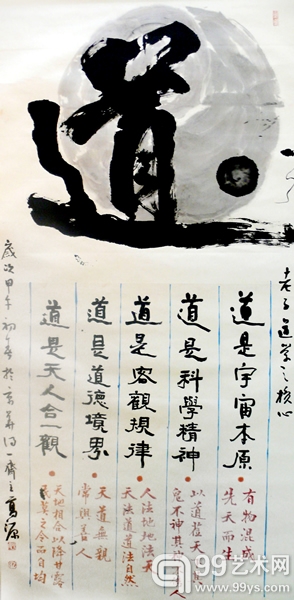 道
老子道学之核心
道是宇宙本原
有物混成
先天而生
道是科學精神
以道莅天
鬼不神其
道是客觀規律
人法地地法天
天法道道法自然
道是道德境界
天道無親
常與善人
道是天人合一觀
天地相合以降甘露
民莫之令而自均
歲次甲午初春於京華得一齋主
99艺术网
www.99ys.com